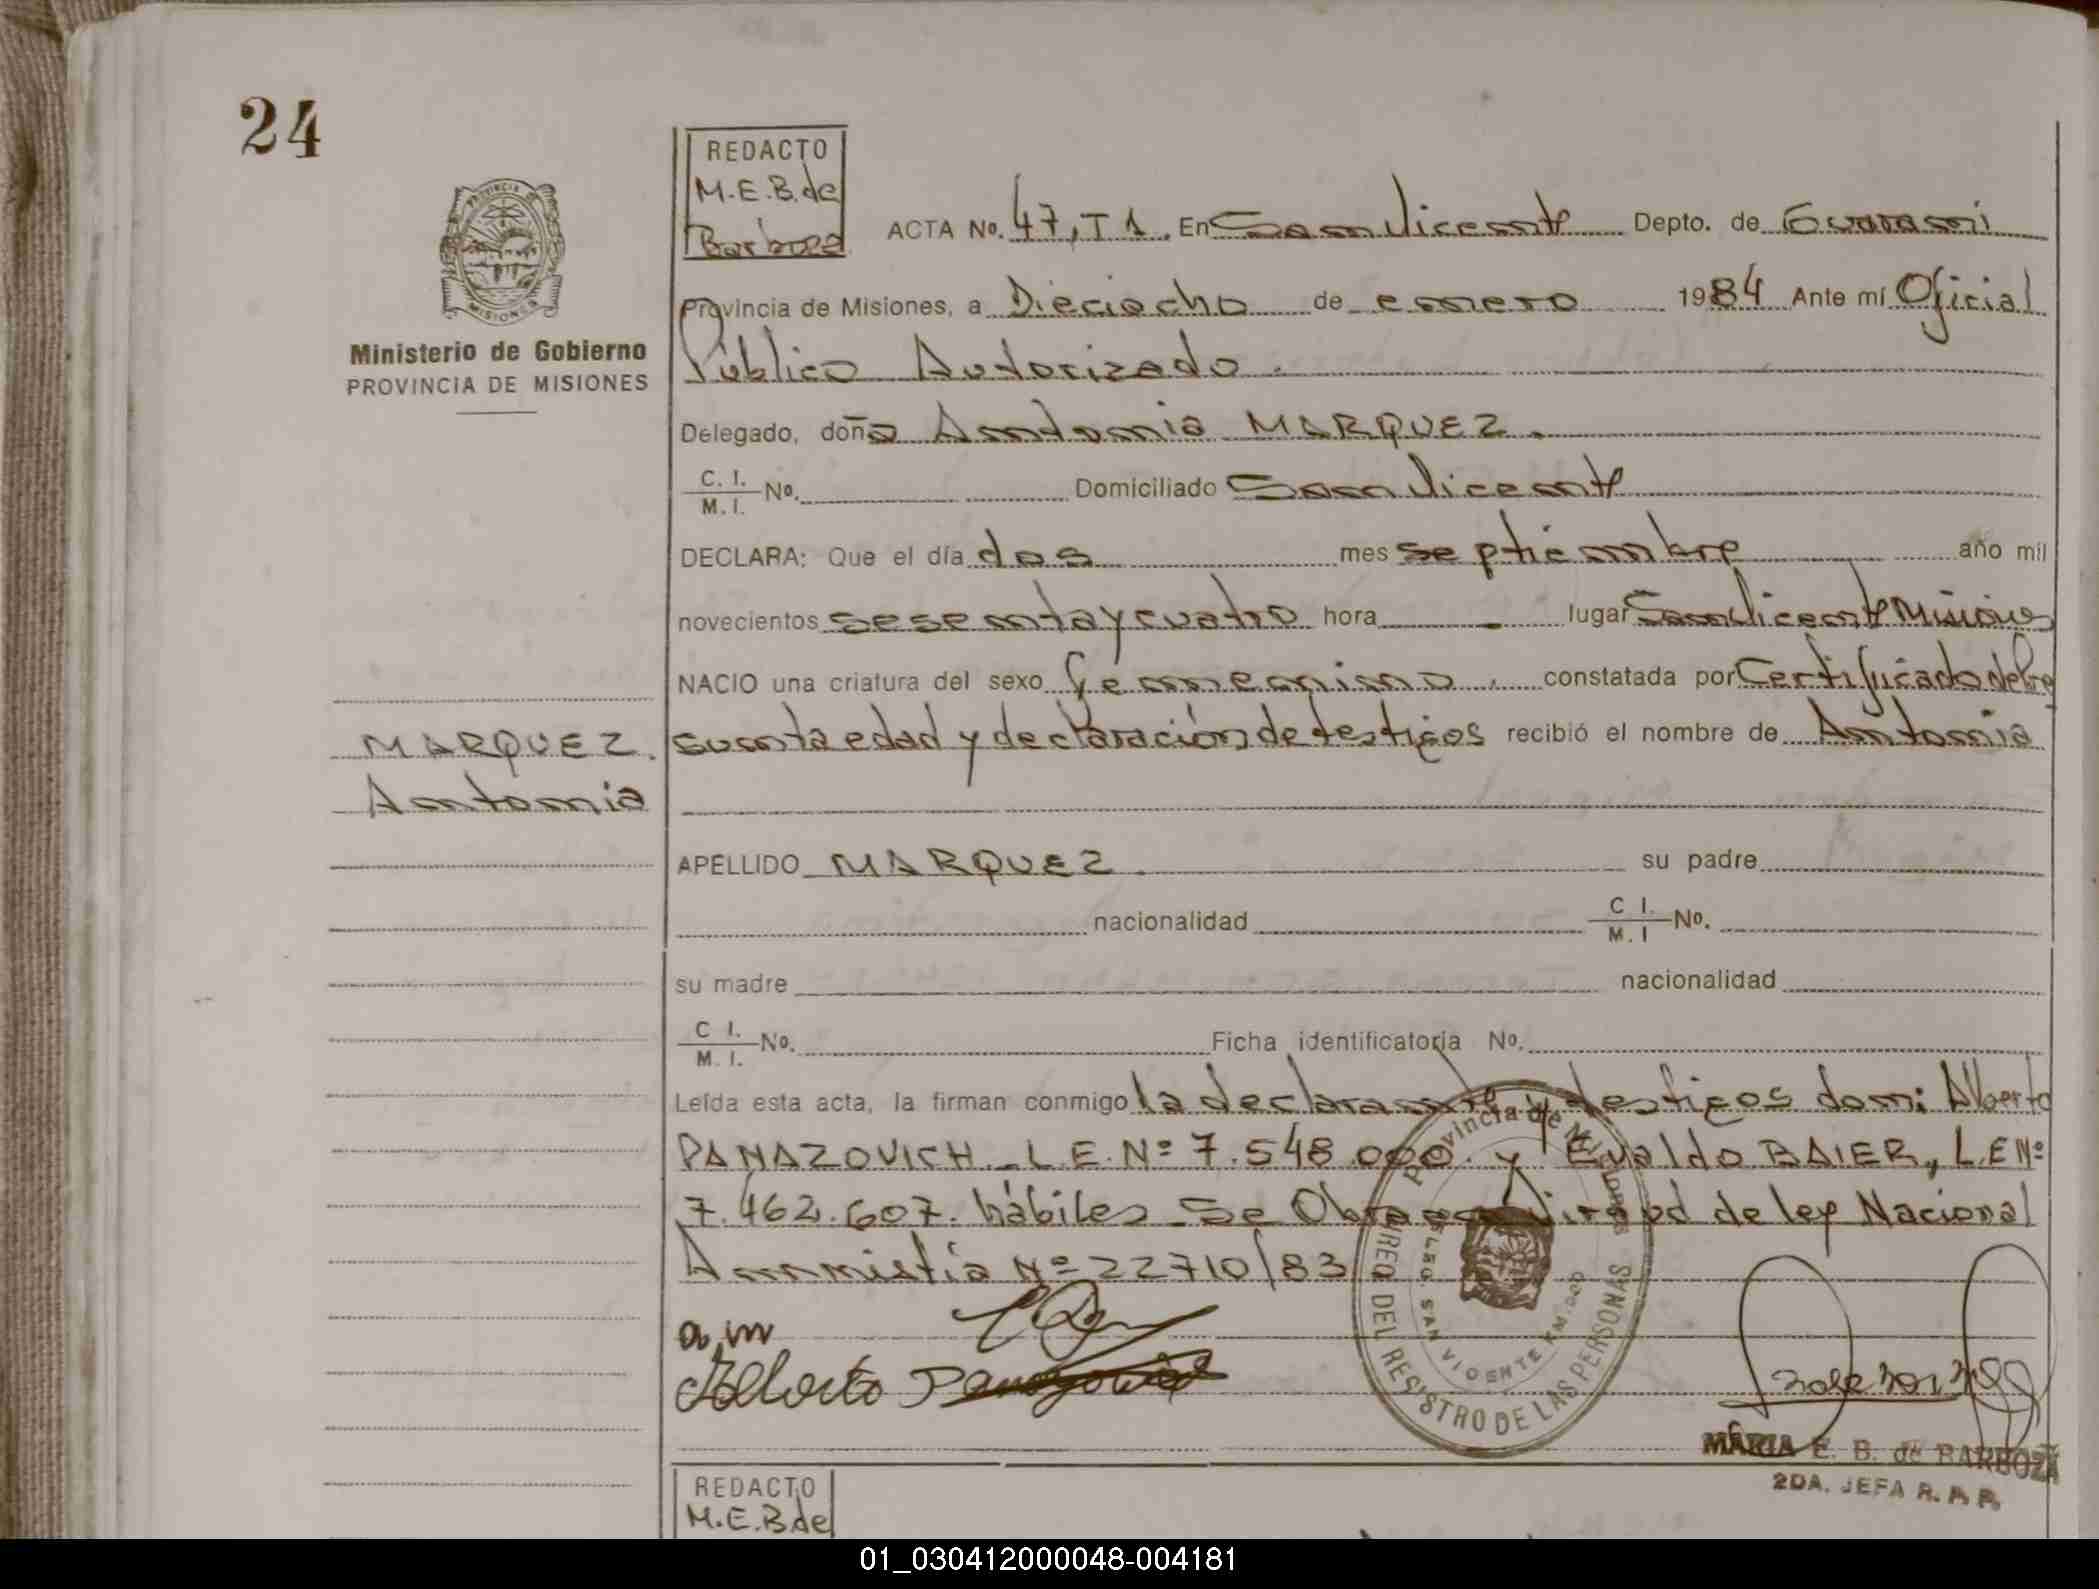 24
PROVINCIA DE
MISIONES
Ministerio de Gobierno
PROVINCIA DE MISIONES
MARQUEZ.
Antonia
REDACTO
M.E.B.de
Barboza
ACTA No. 47, T 1. En San Vicente Depto. de Guarani
Provincia de Misiones, a Dieciocho de enero 1984 Ante mí Oficial
Público Autorizado.
Delegado, doña Antonia MARQUEZ.
C. I.
M. I. No. Domiciliado San Vicente
DECLARA: Que el día dos mes septiembre año mil
novecientos sesenta y cuatro hora - lugar San Vicente Misiones
NACIO una criatura del sexo femenino. constatada por Certificado de Pre
sunta edad y declaración de testigos recibió el nombre de Antonia
APELLIDO MARQUEZ. su padre
nacionalidad C I. M. I No.
su madre nacionalidad
C I. M. I. No. Ficha identificatoria No.
Leída esta acta, la firman conmigo la declarante y testigos don: Alberto
PANAZOVICH _ L.E. Nº 7.548.000. y Evaldo BAIER, L.E Nº
7.462.607. hábiles _ Se Obra en Virtud de ley Nacional
Ammistía Nº 22710/83
a, m
Alberto Panazovich
Provincia de Misiones
DELEG. SAN VICENTE KM.
DEL REGISTRO DE LAS PERSONAS
MARIA E. B. de BARBOZA
2DA. JEFA R. P. P.
REDACTO
M.E.B.de
01_030412000048-004181